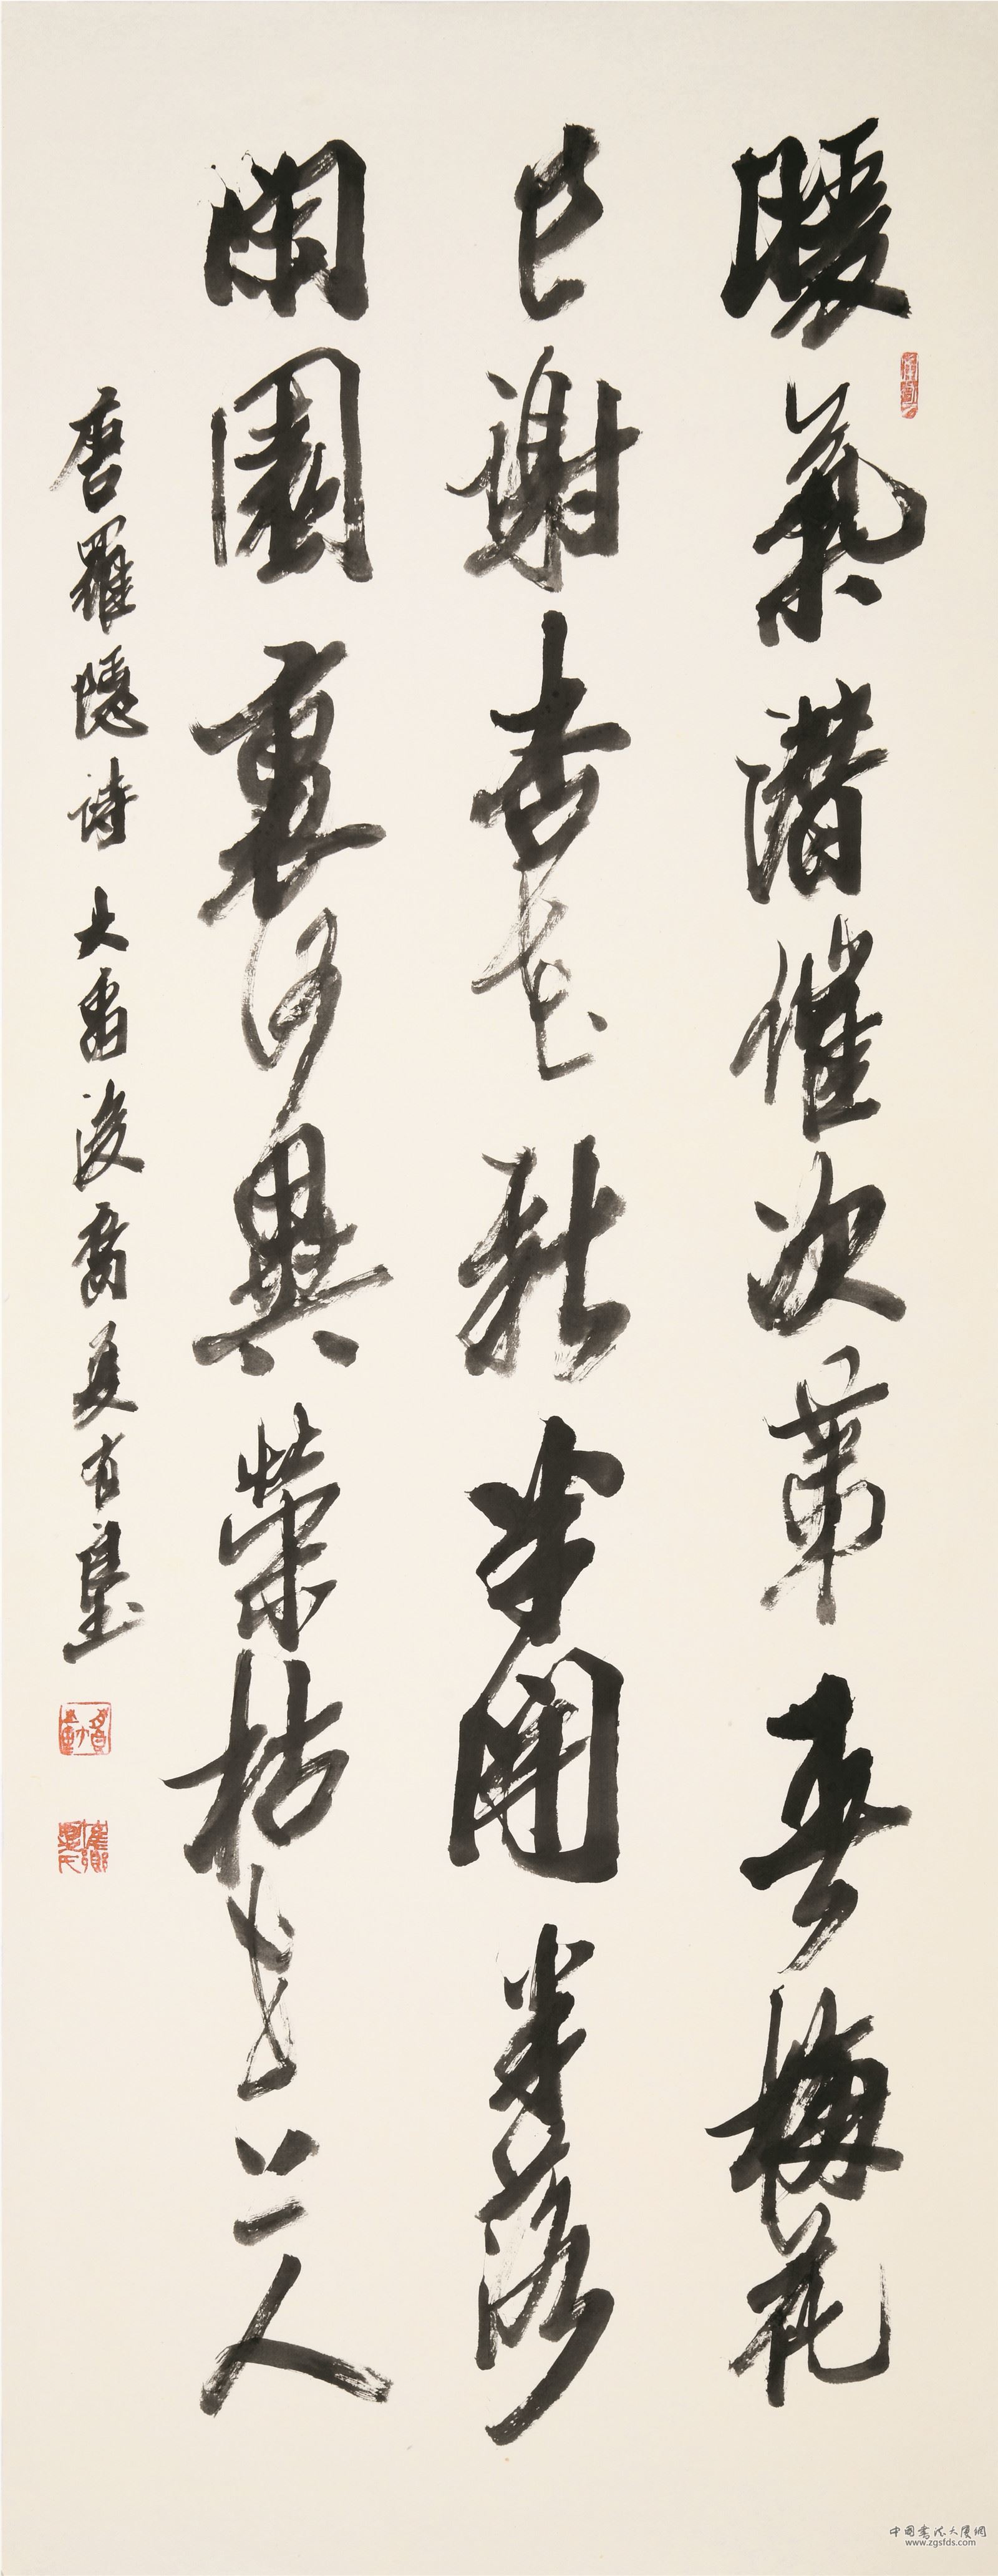 暖氣潛催次第春梅花
已謝杏花新半開半落
閑園裏何異榮枯世上人
唐羅隱詩 大禹後裔夏有
中國書法大厦網
www.zgsfds.com